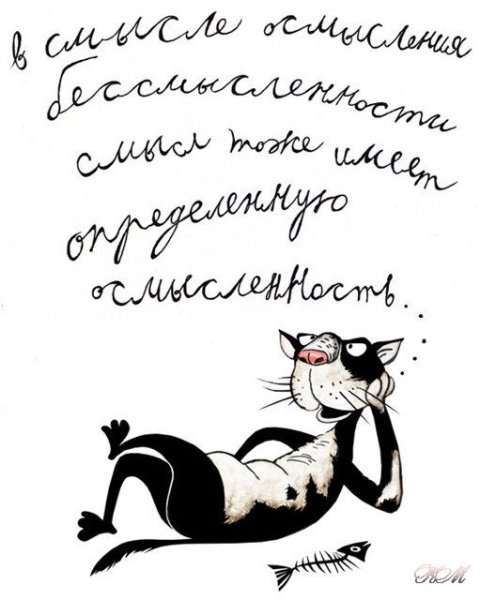 в смысле осмысления
бессмысленности
смысл тоже имеет
определенную
осмысленность...
КМ